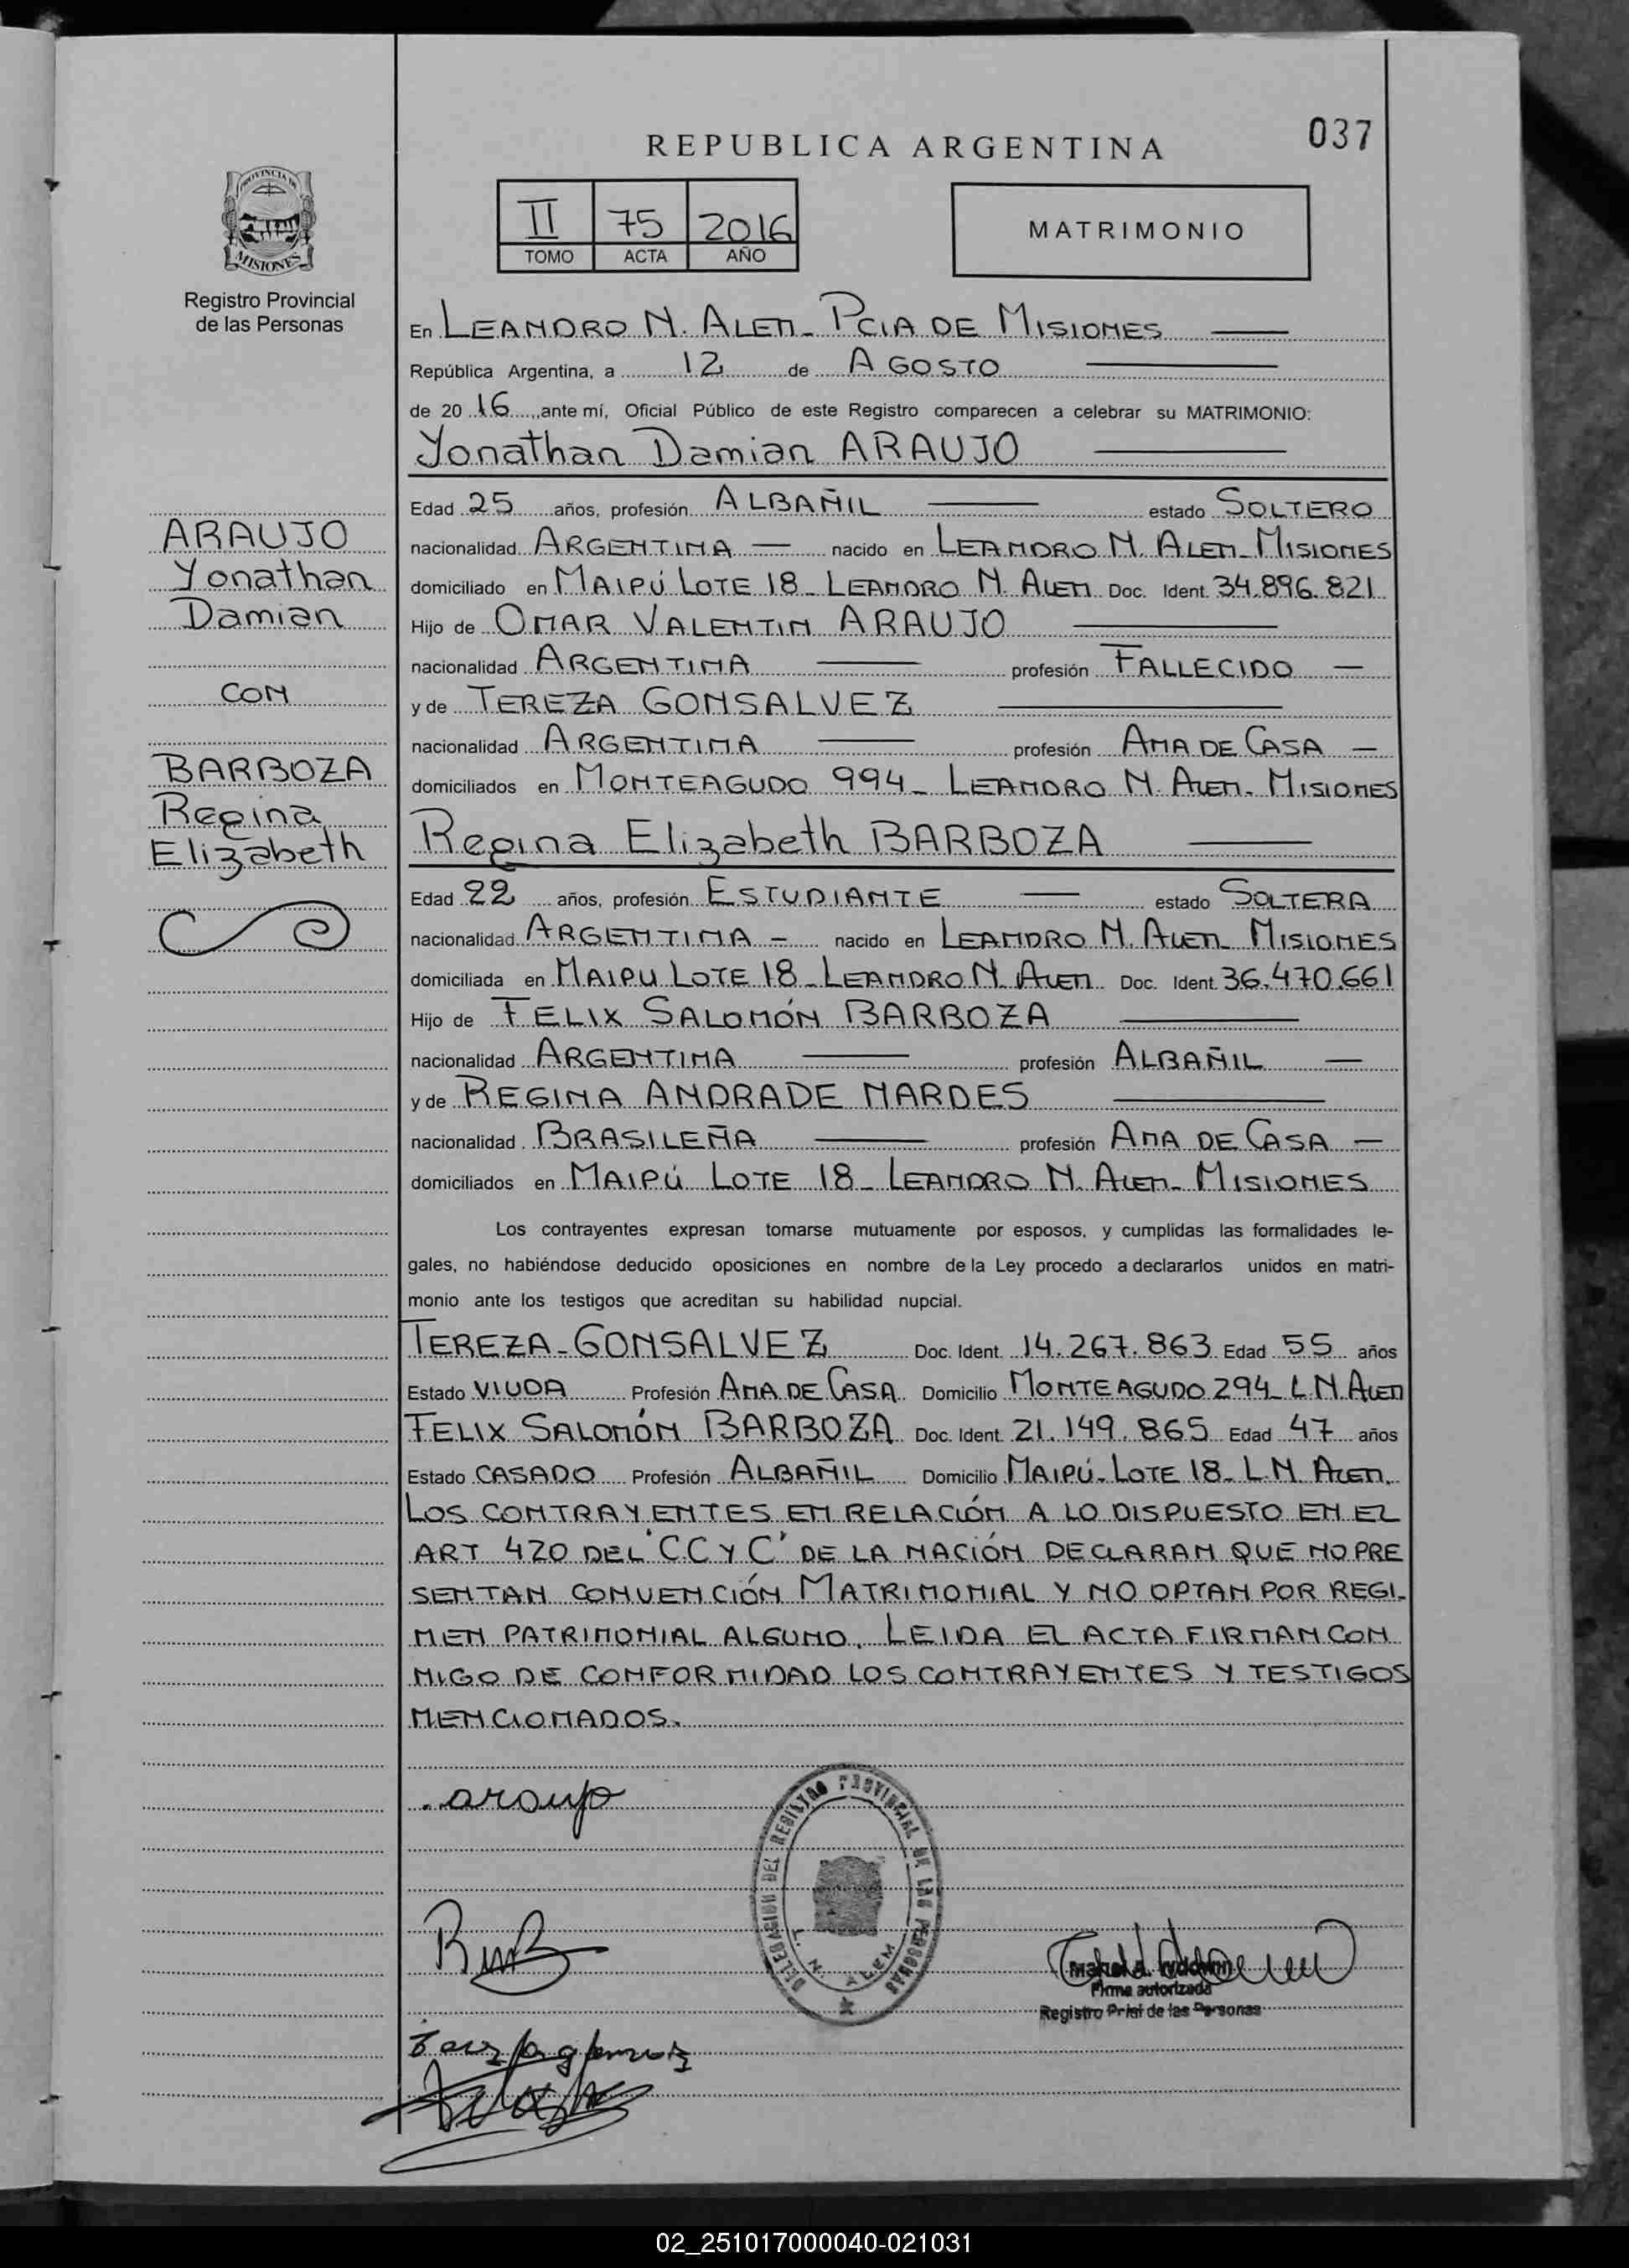 037
REPUBLICA ARGENTINA
PROVINCIA DE
MISIONES
Registro Provincial
de las Personas
II 75 2016
TOMO ACTA AÑO
MATRIMONIO
En LEANDRO N. ALEM - PCIA DE MISIONES
República Argentina, a 12 de AGOSTO
de 2016, ante mí, Oficial Público de este Registro comparecen a celebrar su MATRIMONIO:
Yonathan Damian ARAUJO
Edad 25 años, profesión ALBAÑIL estado SOLTERO
nacionalidad ARGENTINA — nacido en LEANDRO N. ALEM - MISIONES
domiciliado en MAIPÚ LOTE 18 - LEANDRO N. ALEM Doc. Ident. 34.896.821
Hijo de OMAR VALENTIN ARAUJO
nacionalidad ARGENTINA profesión FALLECIDO —
y de TEREZA GONSALVEZ
nacionalidad ARGENTINA profesión AMA DE CASA —
domiciliados en MONTEAGUDO 994 - LEANDRO N. ALEM - MISIONES
Regina Elizabeth BARBOZA
Edad 22 años, profesión ESTUDIANTE — estado SOLTERA
nacionalidad ARGENTINA - nacido en LEANDRO N. ALEM - MISIONES
domiciliada en MAIPU LOTE 18 - LEANDRO N. ALEM Doc. Ident. 36.470.661
Hijo de FELIX SALOMÓN BARBOZA
nacionalidad ARGENTINA profesión ALBAÑIL —
y de REGINA ANDRADE NARDES
nacionalidad BRASILEÑA profesión AMA DE CASA —
domiciliados en MAIPÚ LOTE 18 - LEANDRO N. ALEM - MISIONES
Los contrayentes expresan tomarse mutuamente por esposos, y cumplidas las formalidades le-
gales, no habiéndose deducido oposiciones en nombre de la Ley procedo a declararlos unidos en matri-
monio ante los testigos que acreditan su habilidad nupcial.
TEREZA - GONSALVEZ Doc. Ident. 14.267.863 Edad 55 años
Estado VIUDA Profesión AMA DE CASA Domicilio MONTEAGUDO 294 - L N. ALEM
FELIX SALOMÓN BARBOZA Doc. Ident. 21.149.865 Edad 47 años
Estado CASADO Profesión ALBAÑIL Domicilio MAIPÚ - LOTE 18 - L.N. ALEM.
LOS CONTRAYENTES EN RELACIÓN A LO DISPUESTO EN EL
ART 420 DEL "C.C Y C" DE LA NACIÓN DECLARAN QUE NO PRE
SENTAN CONVENCIÓN MATRIMONIAL Y NO OPTAN POR REGI-
MEN PATRIMONIAL ALGUNO. LEIDA EL ACTA FIRMAN CON
MIGO DE CONFORMIDAD LOS CONTRAYENTES Y TESTIGOS
MENCIONADOS.
ARAUJO
Yonathan
Damian
CON
BARBOZA
Regina
Elizabeth
araujo
DELEGACION DEL REGISTRO PROVINCIAL DE LAS PERSONAS
L. N. ALEM
Firma autorizada
Registro Prial de las Personas
02_251017000040-021031